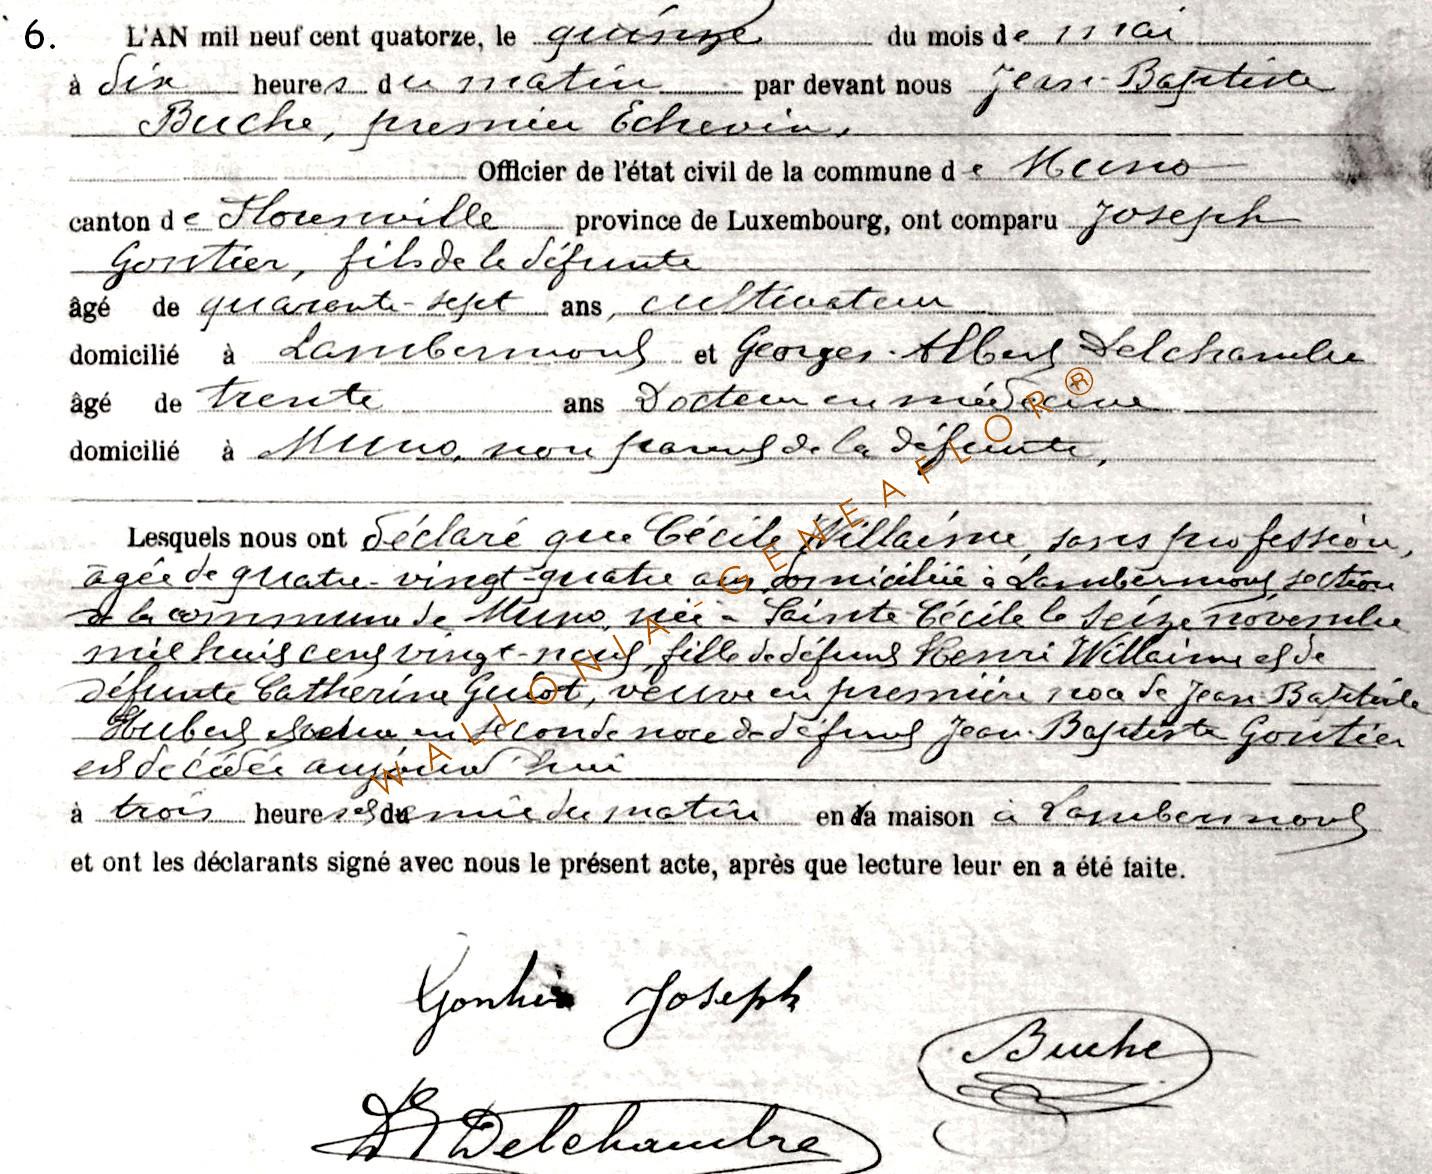 6.
L'AN mil neuf cent quatorze, le quinze du mois de mai
à dix heures du matin par devant nous Jean-Baptiste
Buche, premier Echevin,
Officier de l'état civil de la commune de Muno
canton de Florenville province de Luxembourg, ont comparu Joseph
Gontier, fils de la défunte
âgé de quarante-sept ans, cultivateur
domicilié à Lambermont et Georges-Albert Delchambre
âgé de trente ans Docteur en médecine
domicilié à Muno, non parent de la défunte,
Lesquels nous ont déclaré que Cécile Willaime, sans profession,
âgée de quatre-vingt-quatre ans, domiciliée à Lambermont, section
de la commune de Muno, née à Sainte Cécile le seize novembre
mil huit cent vingt-neuf, fille de défunt Henri Willaime et de
défunte Catherine Guiot, veuve en première noce de Jean-Baptiste
Hubert en seconde noce de défunt Jean-Baptiste Gontier
est décédée aujourd'hui
à trois heures et demie du matin en sa maison à Lambermont
et ont les déclarants signé avec nous le présent acte, après que lecture leur en a été faite.
Gontier Joseph
Buche
Delchambre
WALLONIA - GENEAFLOR®